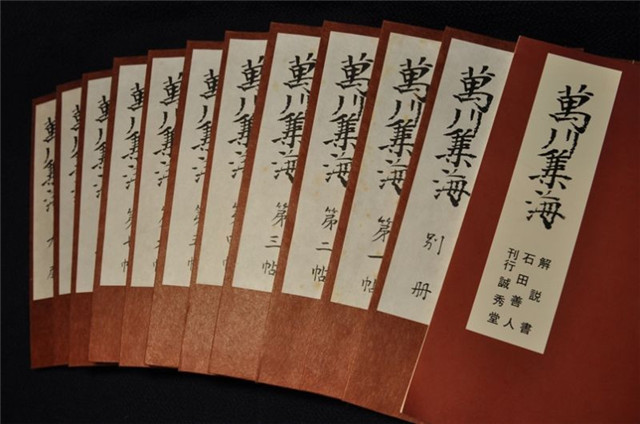 萬川集海
解説書
石田善人
刊行誠秀堂
萬川集海
別册
萬川集海
第一帖
萬川集海
第二帖
萬川集海
第三帖
萬川集海
帖
萬川集海
萬川集海
萬川集海
帖
萬川集海
萬川集海
萬川集海